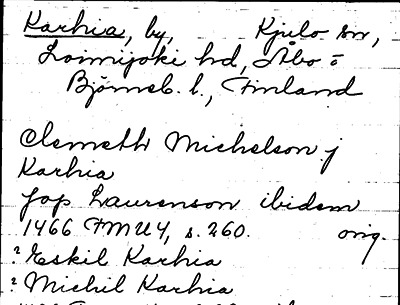 Karhia, by, Kjulo sn,
Loimijoki hd, Åbo o
Björneb. l., Finland
Clemeth Michelson j
Karhia
Jop Laurenson ibidem
1466 FMU4, s. 260. orig.
? Eskil Karhia
? Michil Karhia